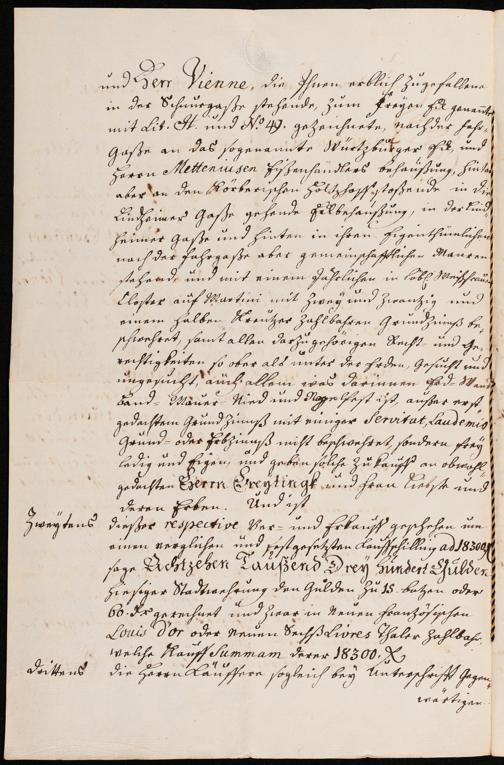 und Herr Vienne, die Ihnen erblich zugefallene
in der Schnurgaße stehende, zum Freyen Eck genannte
mit Lit. H. und No. 49. gezeichnete, nach der Fahr-
Gaße an das sogenannte Würtzburger Eck, und
Herrn Metteniusen Eißenhändlers behaußung, hinten
aber an den Körberischen Holtzhoff stoßende in die
Lindheimer Gaße gehende Eckbehaußung, in der Lind-
heimer Gaße und hinten in ihren Eigenthümlichen
nach der Fahrgaße aber gemeinschafftlichen Mauren
stehend und mit einem Jährlichen in löbl. Weißfrauen
Closter auf Martini mit Zwey und Zwantzig und
einem halben Kreutzer Zahlbahren Grundzinnß be-
schwehret, samt allen darzu gehörigen Recht- und Ge-
rechtigkeiten so ober als unter der Erden, Gesucht und
ungesucht, auch allem was darinnen Erd- Wand
Band- Mauer- Nied und Nagelfest ist, außer erst
gedachtem Grund Zinnß mit einiger Servitut, Laudemio
Grund- oder Erbzinnß nicht beschwehret, sondern frey
ledig und Eigen, und geben solche zu kauffen an obwohl-
gedachten Herrn Greylingk und Frau Liebste und
deren Erben. Und ist
Zweytens dießer respective Ver- und Erkauff geschehen um
einen verglichen und festgesetzten Kauffschilling ad 18300
sage Achtzehen Taußend Drey hundert Gulden
hiesiger Stadtwehrung den Gulden zu 15. batzen oder
60. Xr gerechnet und zwar in Neuen französischen
Louis d'or oder neuen Sechß Livres Thaler Zahlbahr,
welche Kauff Summam derer 18300.
Drittens die Herrn Käuffere sogleich bey Unterschrifft Gegen-
wärtigen